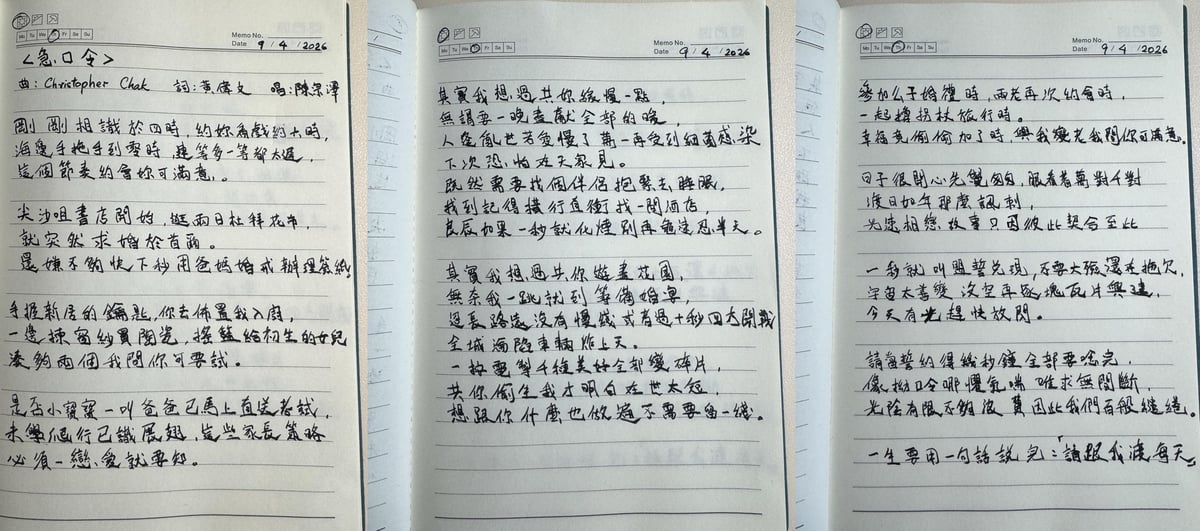 Mo Tu We Th Fr Sa Su
Memo No.
Date 9/4/2026
<急口令>
曲:Christopher Chak 詞:黃偉文 唱:陳柰澤
剛剛相識於四時,約妳看戲約七時,
海邊手拖手到零時,連等多一等都太遲,
這個節奏約會妳可滿意。
尖沙咀書店開始,逛兩日杜拜花市,
就突然求婚於首爾。
還嫌不夠快下秒用爸媽婚戒辦理簽紙
手握新居的鑰匙,你去佈置我入廚,
一邊揀窗紗買陶瓷,搖籃給初生的女兒
湊夠兩個我問你可要試。
是否小寶寶一叫爸爸已馬上直送考試,
未學爬行已識展翅,這些家長策略
必須一戀愛就要知。
Mo Tu We Th Fr Sa Su
Memo No.
Date 9/4/2026
其實我想過共妳緩慢一點,
無謂要一晚盡獻全部的晚,
人危亂世若愛慢了萬一再受到細菌感染
下次恐怕在天家見。
既然需要找個伴侶抱緊去睡眠,
找到記得橫行直衝找一間酒店,
良辰如果一秒就化煙別再龜速忍半天。
其實我想過共你遊盡花園
無奈我一跳就到籌備婚宴,
過長路途沒有慢錢或者過十秒四方開戰
全城淪陷車輛炸上天。
一按電掣千種美好全部變碎片
共你偷生我才明白在世太短
想跟你什麼也做過不需要每一樣。
Mo Tu We Th Fr Sa Su
Memo No.
Date 9/4/2026
參加公子婚禮時,兩老再次約會時,
一起撐拐杖旅行時。
幸福免偷偷加了時,與我變老我問你可滿意。
日子很開心光覺匆匆,眼看着萬對千對
渡日如年那麼諷刺,
光速相戀故事只因彼此契合至此
一秒就叫盟誓兌現,不要太張還在拖欠,
宇宙太善變 沒空再砌塊瓦片興建,
今天有光趕快放閃。
請每誓約得幾秒鐘全部要唸完,
像拗口令哪懼氣喘 唯求無間斷,
光陰有限不夠浪費因此我們百般纏綣,
一生要用一句話說完:「請跟我渡每天」